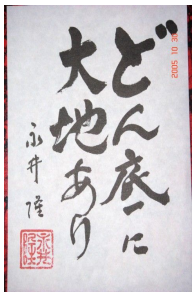 どん底に
大地あり
永井隆
2005 10 30